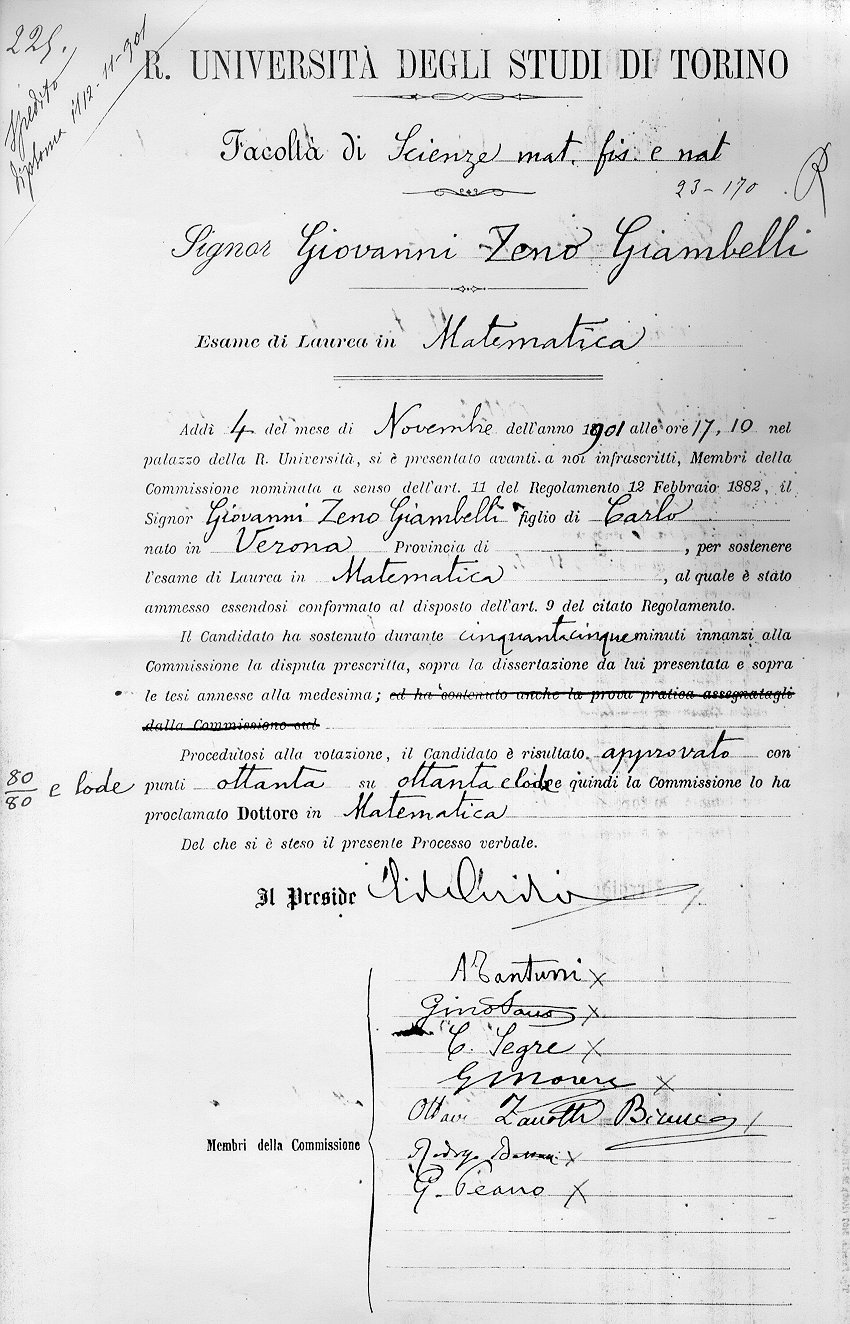 225.
Spedito
diploma il 12-11-901
R. UNIVERSITÀ DEGLI STUDI DI TORINO
Facoltà di Scienze mat. fis. e nat
23-170 R
Signor Giovanni Zeno Giambelli
Esame di Laurea in Matematica
Addì 4 del mese di Novembre dell'anno 1901 alle ore 17,10 nel
palazzo della R. Università, si è presentato avanti a noi infrascritti, Membri della
Commissione nominata a senso dell'art. 11 del Regolamento 12 Febbraio 1882, il
Signor Giovanni Zeno Giambelli figlio di Carlo
nato in Verona Provincia di , per sostenere
l'esame di Laurea in Matematica , al quale è stato
ammesso essendosi conformato al disposto dell'art. 9 del citato Regolamento.
Il Candidato ha sostenuto durante cinquantacinque minuti innanzi alla
Commissione la disputa prescritta, sopra la dissertazione da lui presentata e sopra
le tesi annesse alla medesima; ed ha sostenuto anche la prova pratica assegnatagli
dalla Commissione sul
Procedutosi alla votazione, il Candidato è risultato approvato con
80/80 e lode punti ottanta su ottanta e lode e quindi la Commissione lo ha
proclamato Dottore in Matematica
Del che si è steso il presente Processo verbale.
Il Preside
Gino Fano x
C. Segre x
G Morera x
Zanotti Bianco
Membri della Commissione
G. Peano x